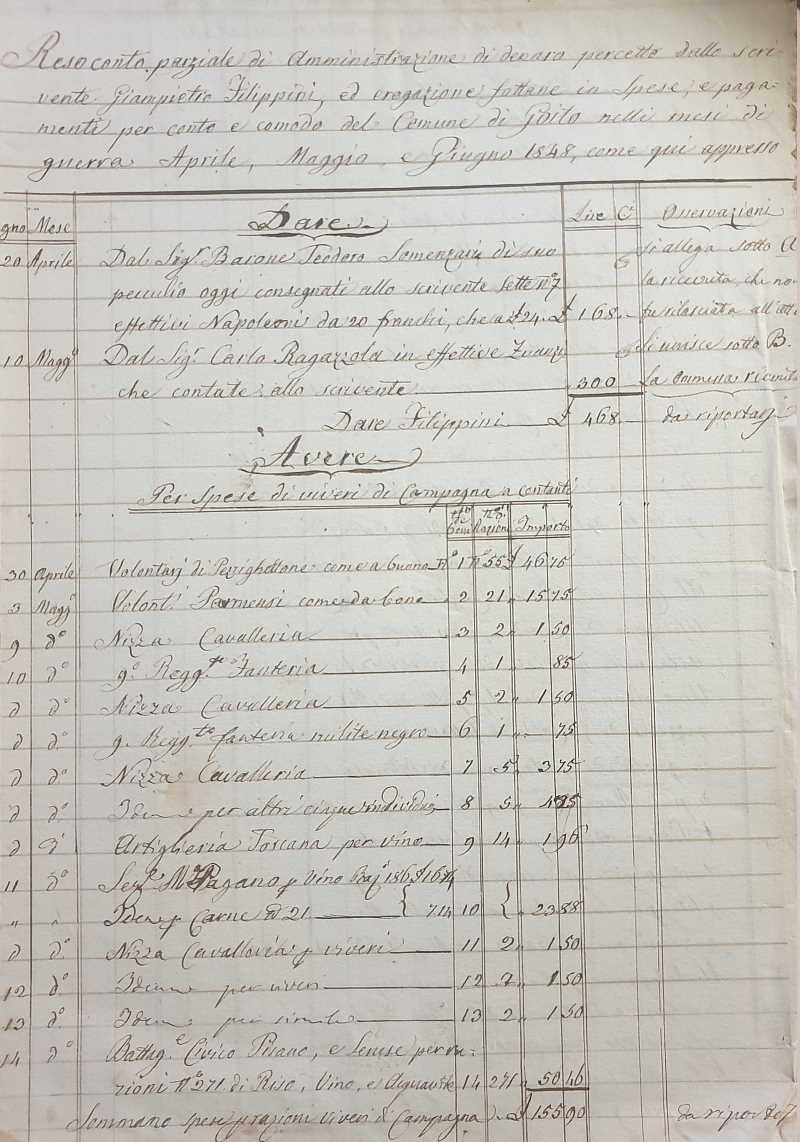 Resoconto parziale di Amministrazione di denaro percetto dallo scri-
vente Giampietro Filippini, ed erogazione fattane in Spese, e paga-
menti per conto e comodo del Comune di Goito nelli mesi di
guerra Aprile, Maggio, e Giugno 1848, come qui appresso
gno Mese Dare Lire Cⁱ Osservazioni
20 Aprile Dal Sigʳ Barone Teodoro Somenzari di suo Si allega sotto A
peculio oggi consegnati allo scrivente Sette nº 7 la ricevuta, che
effettivi Napoleoni da 20 franchi, che a £ 24. £ 168. - fu rilasciata all'
10 Maggº Dal Sigʳ Carlo Ragazzola in effettive Zvanzi Si unisce sotto B.
che contate allo scrivente 300 La ricevuta
Dare Filippini £ 468. - da riportarsi
Avere
Per Spese di viveri di Campagna a contanti
Nº Boni Nº Razioni Importo
30 Aprile Volontarj di Pizzighettone come a buono Nº 1 Nº 55 £ 46 75
3 Maggº Volontⁱ Parmensi come da bono 2 21 " 15 75
9 dº Nizza Cavalleria 3 2 " 1 50
10 dº 9º Reggᵗᵒ Fanteria 4 1 " 85
d dº Nizza Cavalleria 5 2 " 1 50
d dº 9. Reggᵗᵒ fanteria milite negro 6 1 " 75
d dº Nizza Cavalleria 7 5 " 3 75
d dº Idem per altri cinque individui 8 5 "
d dº Artiglieria Toscana per vino 9 14 " 1 96
11 dº Pagano p Vino
" " Idem p Carne 21 7.14 10 " 23 88
d dº Nizza Cavalleria p viveri 11 2 " 1 50
12 dº Idem per viveri 12 2 " 1 50
13 dº Idem per simile 13 2 " 1 50
14 dº Battagᵉ Civico Pisano, e Senese per ra-
zioni Nº 271 di Riso, Vino, e Aquavite 14 271 " 50 46
Sommano spese p razioni viveri di Campagna £ 155 90 da riportarsi